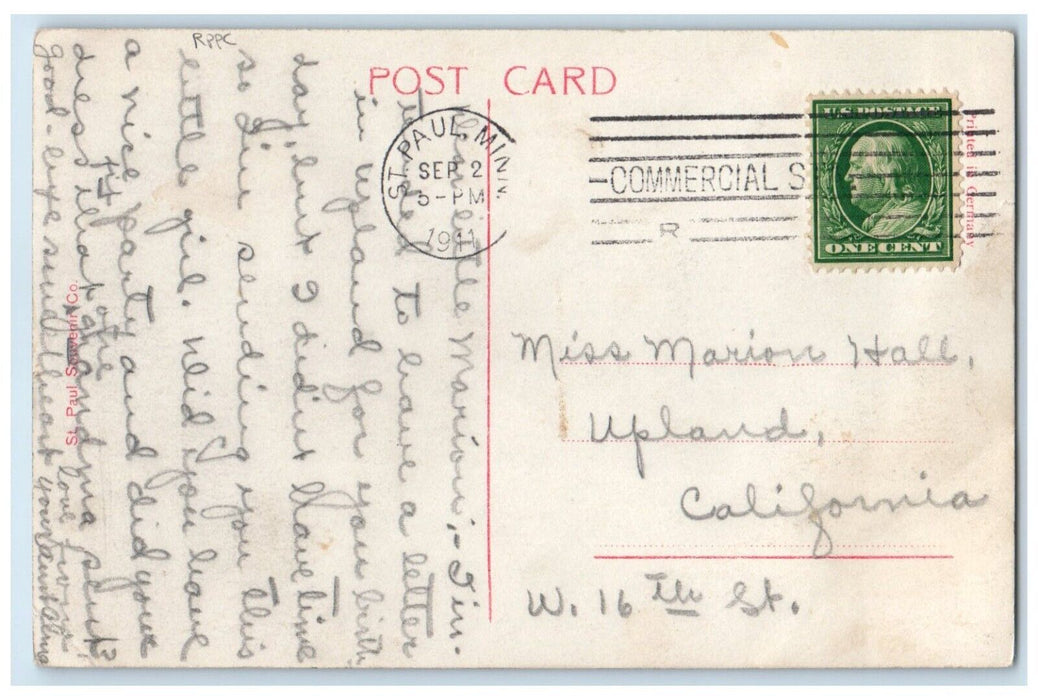 RPPC
POST CARD
ST. PAUL, MINN.
SEP 2
5-PM
1911
COMMERCIAL S
R
U.S. POSTAGE
ONE CENT
Printed in Germany
little Marion:- I in-
tended to have a letter
in Upland for your birth
day, but I didnt have time
so I'm sending you this
little girl. Did you have
a nice party and did your
dress grandma sent
fit
good-bye sweetheart
love from
your Aunt Alma
St. Paul Souvenir Co.
Miss Marion Hall,
Upland,
California
W. 16th St.